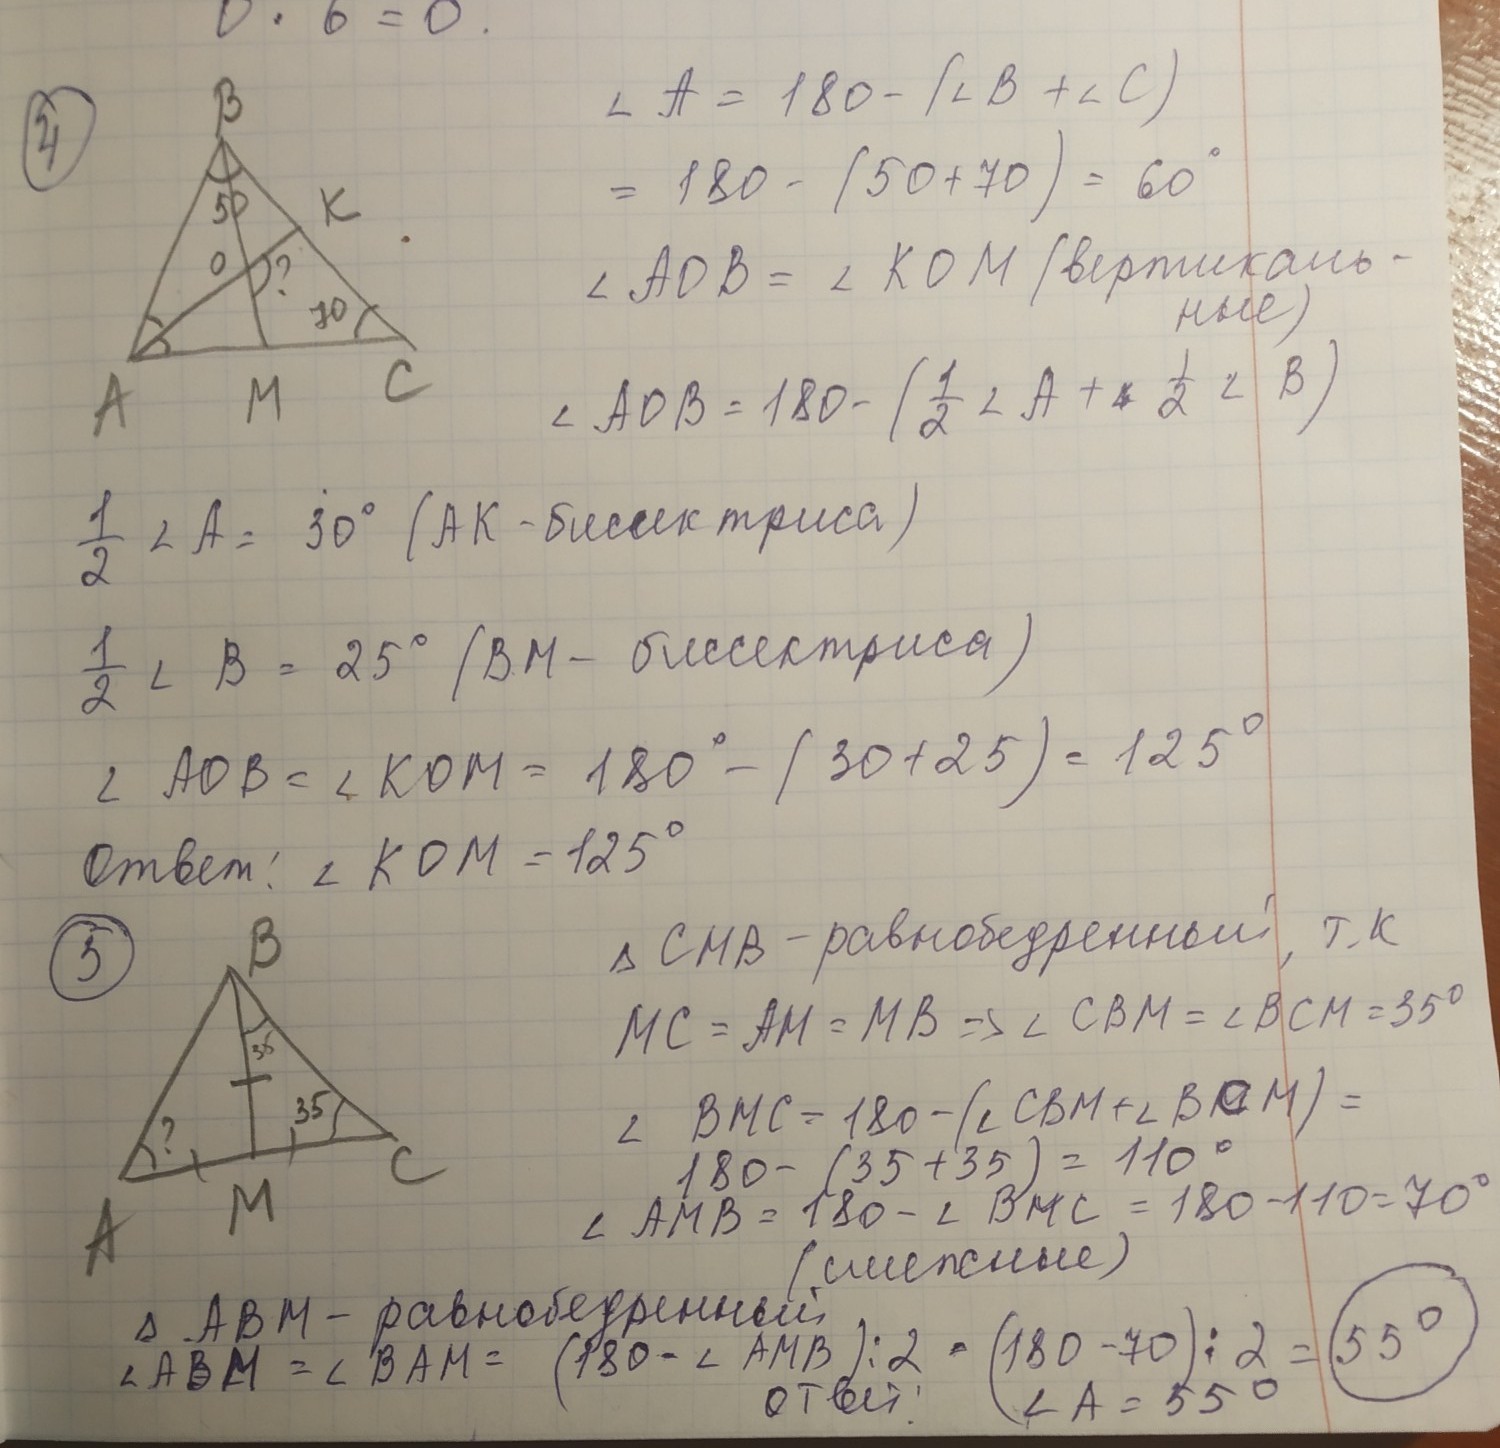 0 · 6 = 0.
4
B
50
K
O
?
70
A
M
C
∠ A = 180 - (∠ B + ∠ C)
= 180 - (50+70) = 60°
∠ AOB = ∠ KOM (вертикаль-
ные)
∠ AOB = 180 - (1/2 ∠ A + 1/2 ∠ B)
1/2 ∠ A = 30° (AK - биссектриса)
1/2 ∠ B = 25° (BM - биссектриса)
∠ AOB = ∠ KOM = 180° - (30+25) = 125°
Ответ: ∠ KOM = 125°
5
B
35
?
35
A
M
C
△ CMB - равнобедренный, т.к
MC = AM = MB => ∠ CBM = ∠ BCM = 35°
∠ BMC = 180 - (∠ CBM + ∠ BCM) =
180 - (35+35) = 110°
∠ AMB = 180 - ∠ BMC = 180 - 110 = 70°
(смежные)
△ ABM - равнобедренный
∠ ABM = ∠ BAM = (180 - ∠ AMB) : 2 = (180 - 70) : 2 = 55°
ответ: ∠ A = 55°